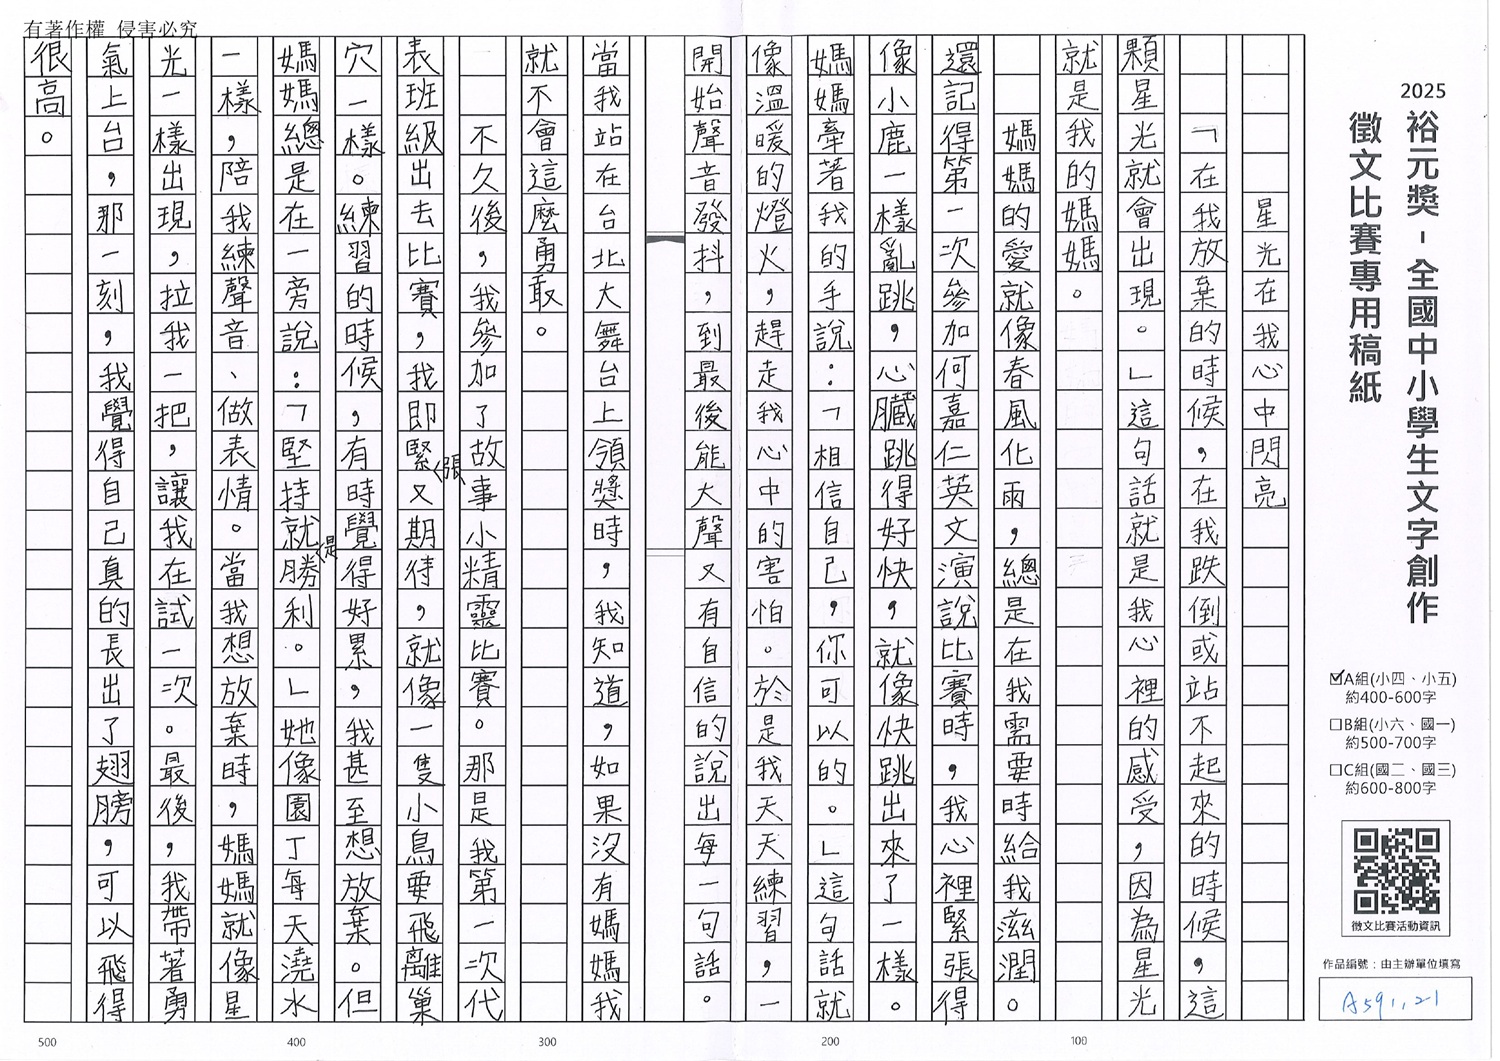 有著作權 侵害必究
2025
裕元獎-全國中小學生文字創作
徵文比賽專用稿紙
☑A組(小四、小五)
約400-600字
□B組(小六、國一)
約500-700字
□C組(國二、國三)
約600-800字
徵文比賽活動資訊
作品編號:由主辦單位填寫
A591,21
星光在我心中閃亮
「在我放棄的時候,在我跌倒或站不起來的時候,這
顆星光就會出現。」這句話就是我心裡的感受,因為星光
就是我的媽媽。
媽媽的愛就像春風化雨,總是在我需要時給我滋潤。
還記得第一次參加何嘉仁英文演說比賽時,我心裡緊張得
像小鹿一樣亂跳,心臟跳得好快,就像快跳出來了一樣。
媽媽牽著我的手說:「相信自己,你可以的。」這句話就
像溫暖的燈火,趕走我心中的害怕。於是我天天練習,一
開始聲音發抖,到最後能大聲又有自信的說出每一句話。
當我站在台北大舞台上領獎時,我知道,如果沒有媽媽我
就不會這麼勇敢。
不久後,我參加了故事小精靈比賽。那是我第一次代
表班級出去比賽,我即緊張又期待,就像一隻小鳥要飛離巢
穴一樣。練習的時候,有時覺得好累,我甚至想放棄。但
媽媽總是在一旁說:「堅持就是勝利。」她像園丁每天澆水
一樣,陪我練聲音、做表情。當我想放棄時,媽媽就像星
光一樣出現,拉我一把,讓我在試一次。最後,我帶著勇
氣上台,那一刻,我覺得自己真的長出了翅膀,可以飛得
很高。
100
200
300
400
500